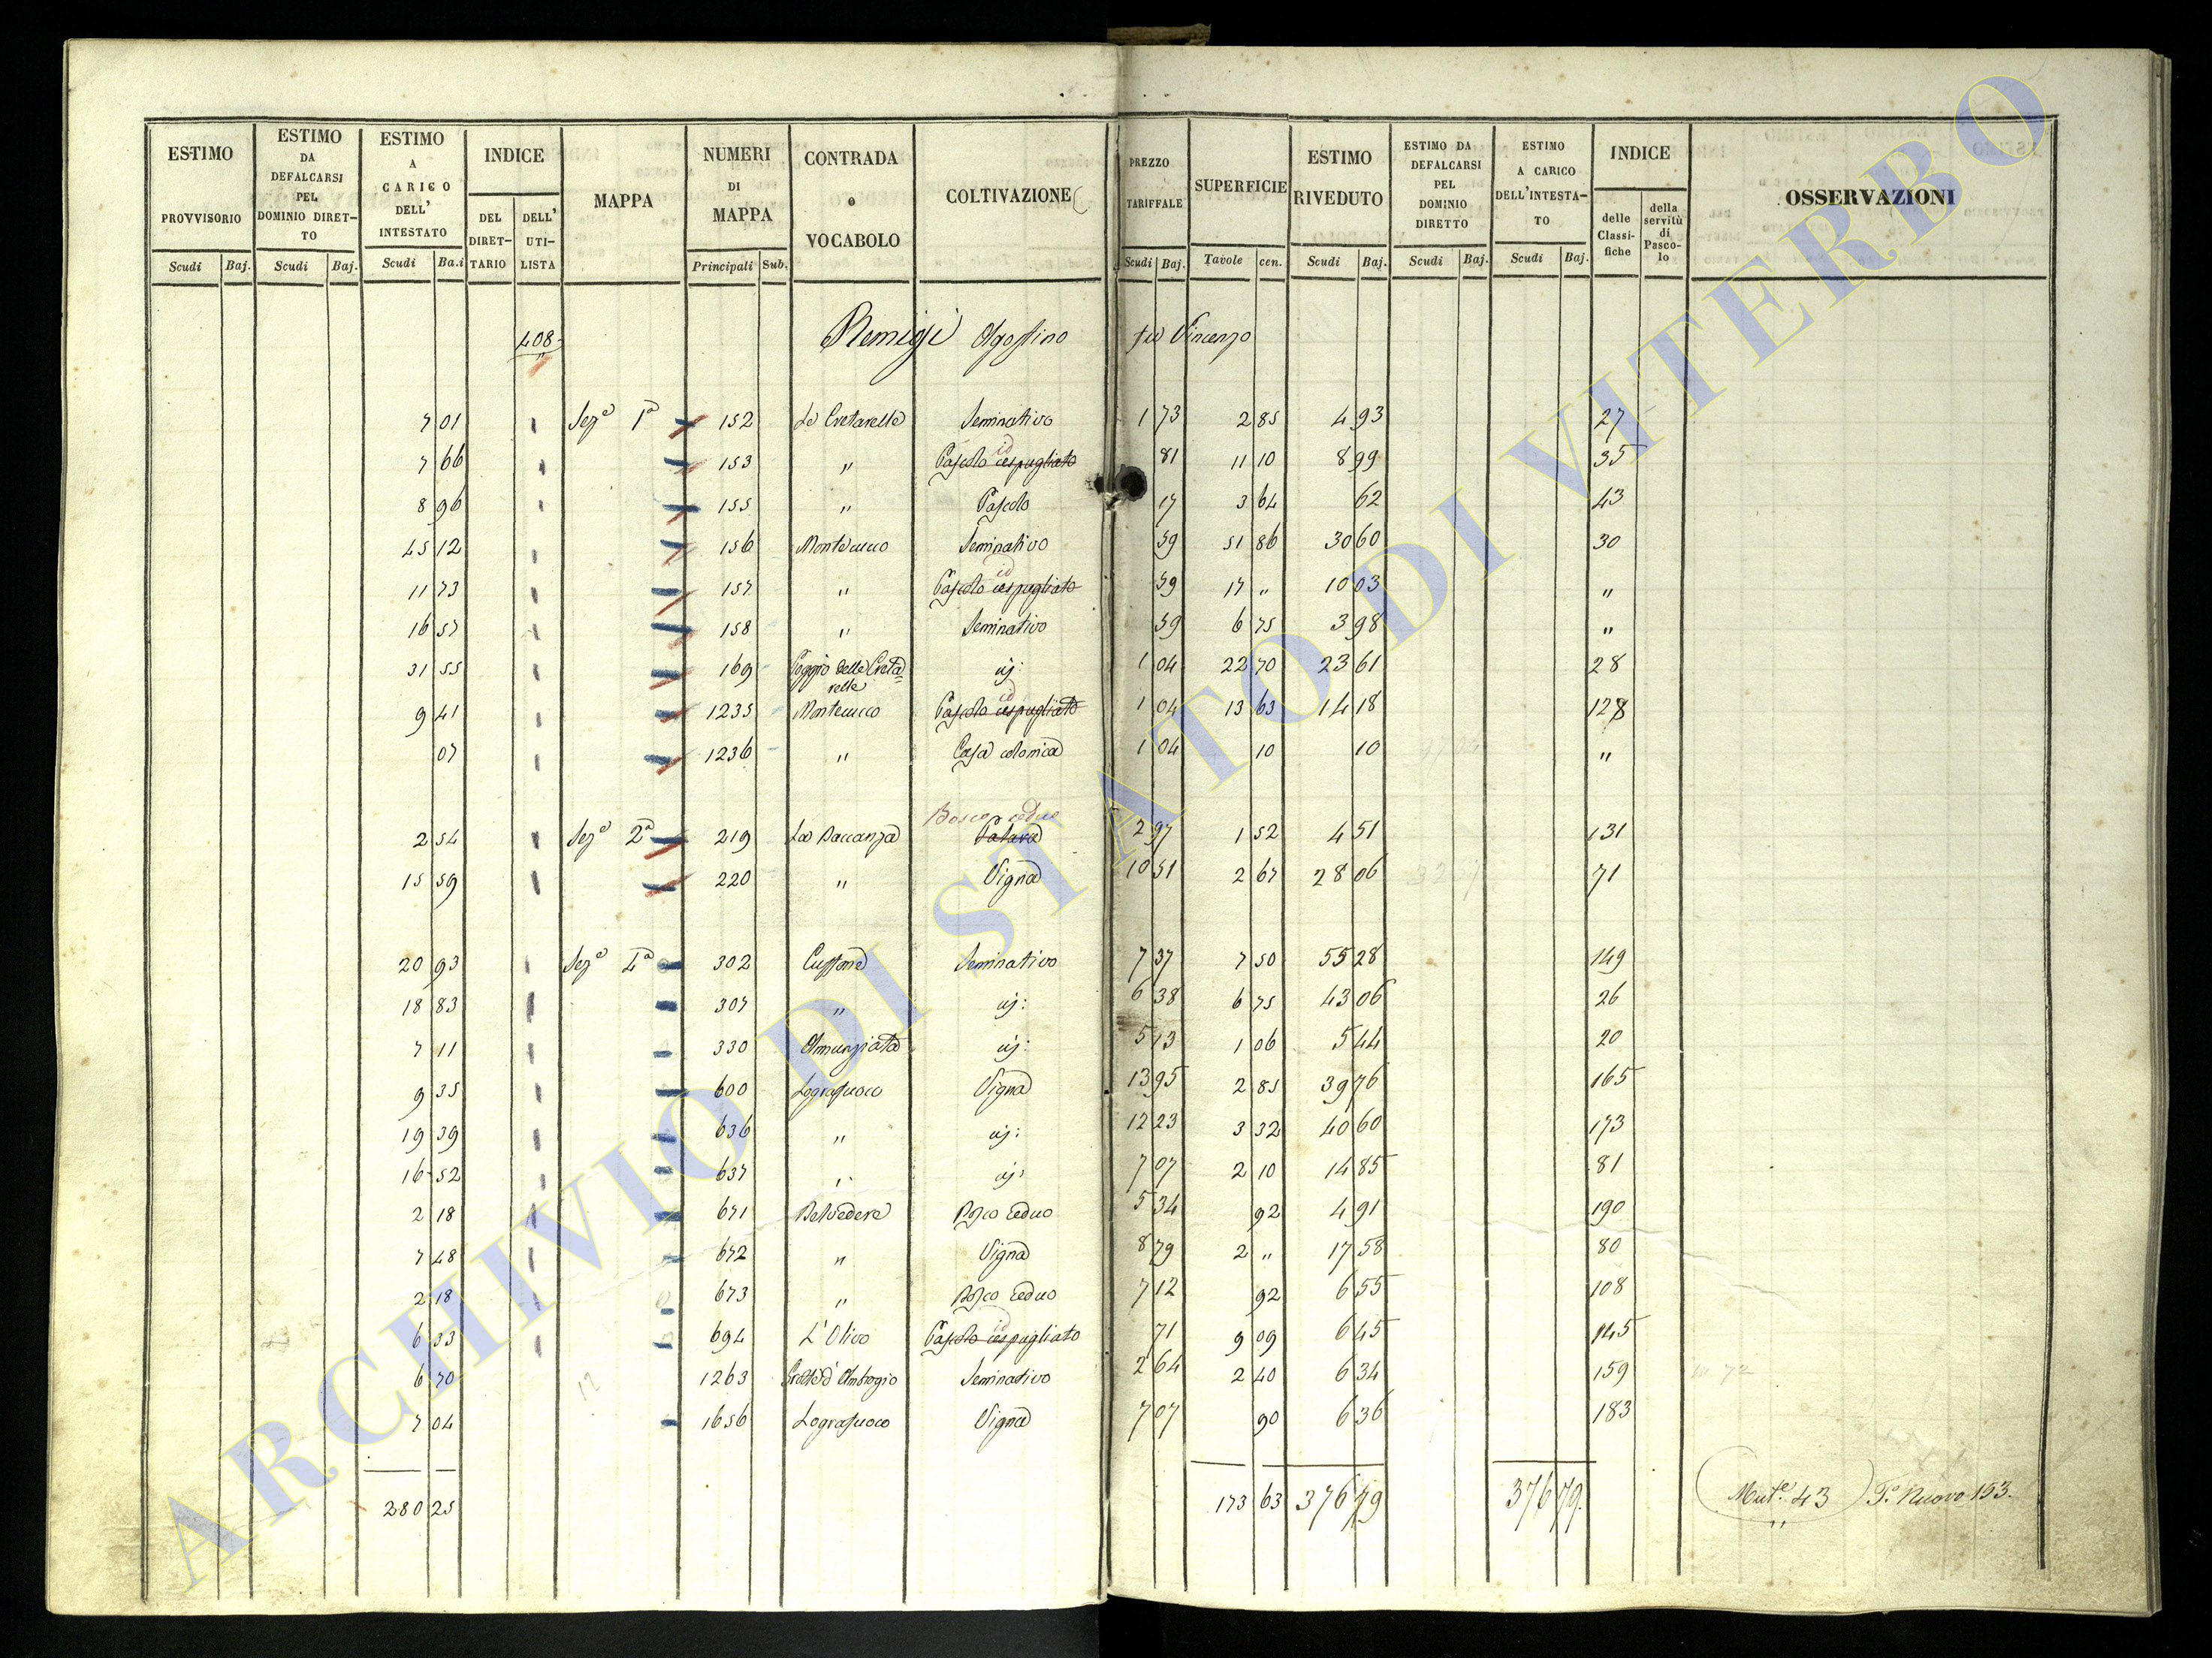 ESTIMO PROVVISORIO Scudi Baj.
ESTIMO DA DEFALCARSI PEL DOMINIO DIRET-TO Scudi Baj.
ESTIMO A CARICO DELL' INTESTATO Scudi Ba.i
INDICE DEL DIRET-TARIO DELL' UTI-LISTA
MAPPA
NUMERI DI MAPPA Principali Sub.
CONTRADA o VOCABOLO
COLTIVAZIONE
PREZZO TARIFFALE Scudi Baj.
SUPERFICIE Tavole cen.
ESTIMO RIVEDUTO Scudi Baj.
ESTIMO DA DEFALCARSI PEL DOMINIO DIRETTO Scudi Baj.
ESTIMO A CARICO DELL'INTESTA-TO Scudi Baj.
INDICE delle Classi-fiche della servitù di Pasco-lo
OSSERVAZIONI
408 Remigi Agostino fu Vincenzo
7 01 Seze 1a 152 Le Cretarelle Seminativo 1 73 2 85 4 93 27
7 66 153 " Pascolo cespugliato id 81 11 10 8 99 35
8 96 155 " Pascolo 17 3 64 62 43
45 12 156 Montecucco Seminativo 59 51 86 30 60 30
11 73 157 " Pascolo cespugliato id 59 17 " 10 03 "
16 57 158 " Seminativo 59 6 75 3 98 "
31 55 169 Poggio delle Creta=relle id: 1 04 22 70 23 61 28
9 41 1235 Montecucco Pascolo cespugliato id 1 04 13 63 14 18 128
07 1236 " Casa colonica 1 04 10 10 "
Bosco ceduo
2 54 Seze 2a 219 La Baccanza 2 97 1 52 4 51 131
15 59 220 " Vigna 10 51 2 67 28 06 71
20 93 Seze 4a 302 Seminativo 7 37 7 50 55 28 149
18 83 307 " id: 6 38 6 75 43 06 26
7 11 330 Annunziata id: 5 13 1 06 5 44 20
9 35 600 Lograsuoco Vigna 13 95 2 85 39 76 165
19 39 636 " id: 12 23 3 32 40 60 173
16 52 637 " id: 7 07 2 10 14 85 81
2 18 671 Belvedere Bosco ceduo 5 34 92 4 91 190
7 48 672 " Vigna 8 79 2 " 17 58 80
2 18 673 " Bosco ceduo 7 12 92 6 55 108
6 33 694 L'Olivo Pascolo cespugliato id 71 9 09 6 45 145
6 70 1263 Ambrogio Seminativo 2 64 2 40 6 34 159
7 04 1656 Lograsuoco Vigna 7 07 90 6 36 183
280 25 173 63 376 79 376 79 Mut.e 43 T.o Nuovo 153.
ARCHIVIO DI STATO DI VITERBO